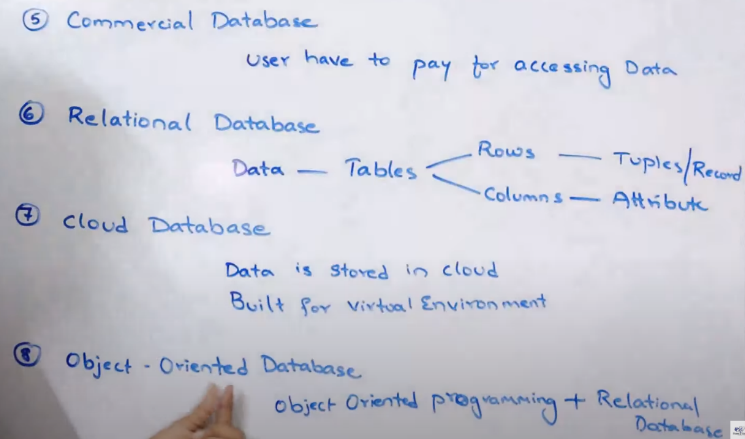 ⑤ Commercial Database
User have to pay for accessing Data
⑥ Relational Database
Data — Tables
Rows — Tuples/Record
Columns — Attribute
⑦ Cloud Database
Data is stored in cloud
Built for Virtual Environment
⑧ Object - Oriented Database
Object Oriented programming + Relational
Database